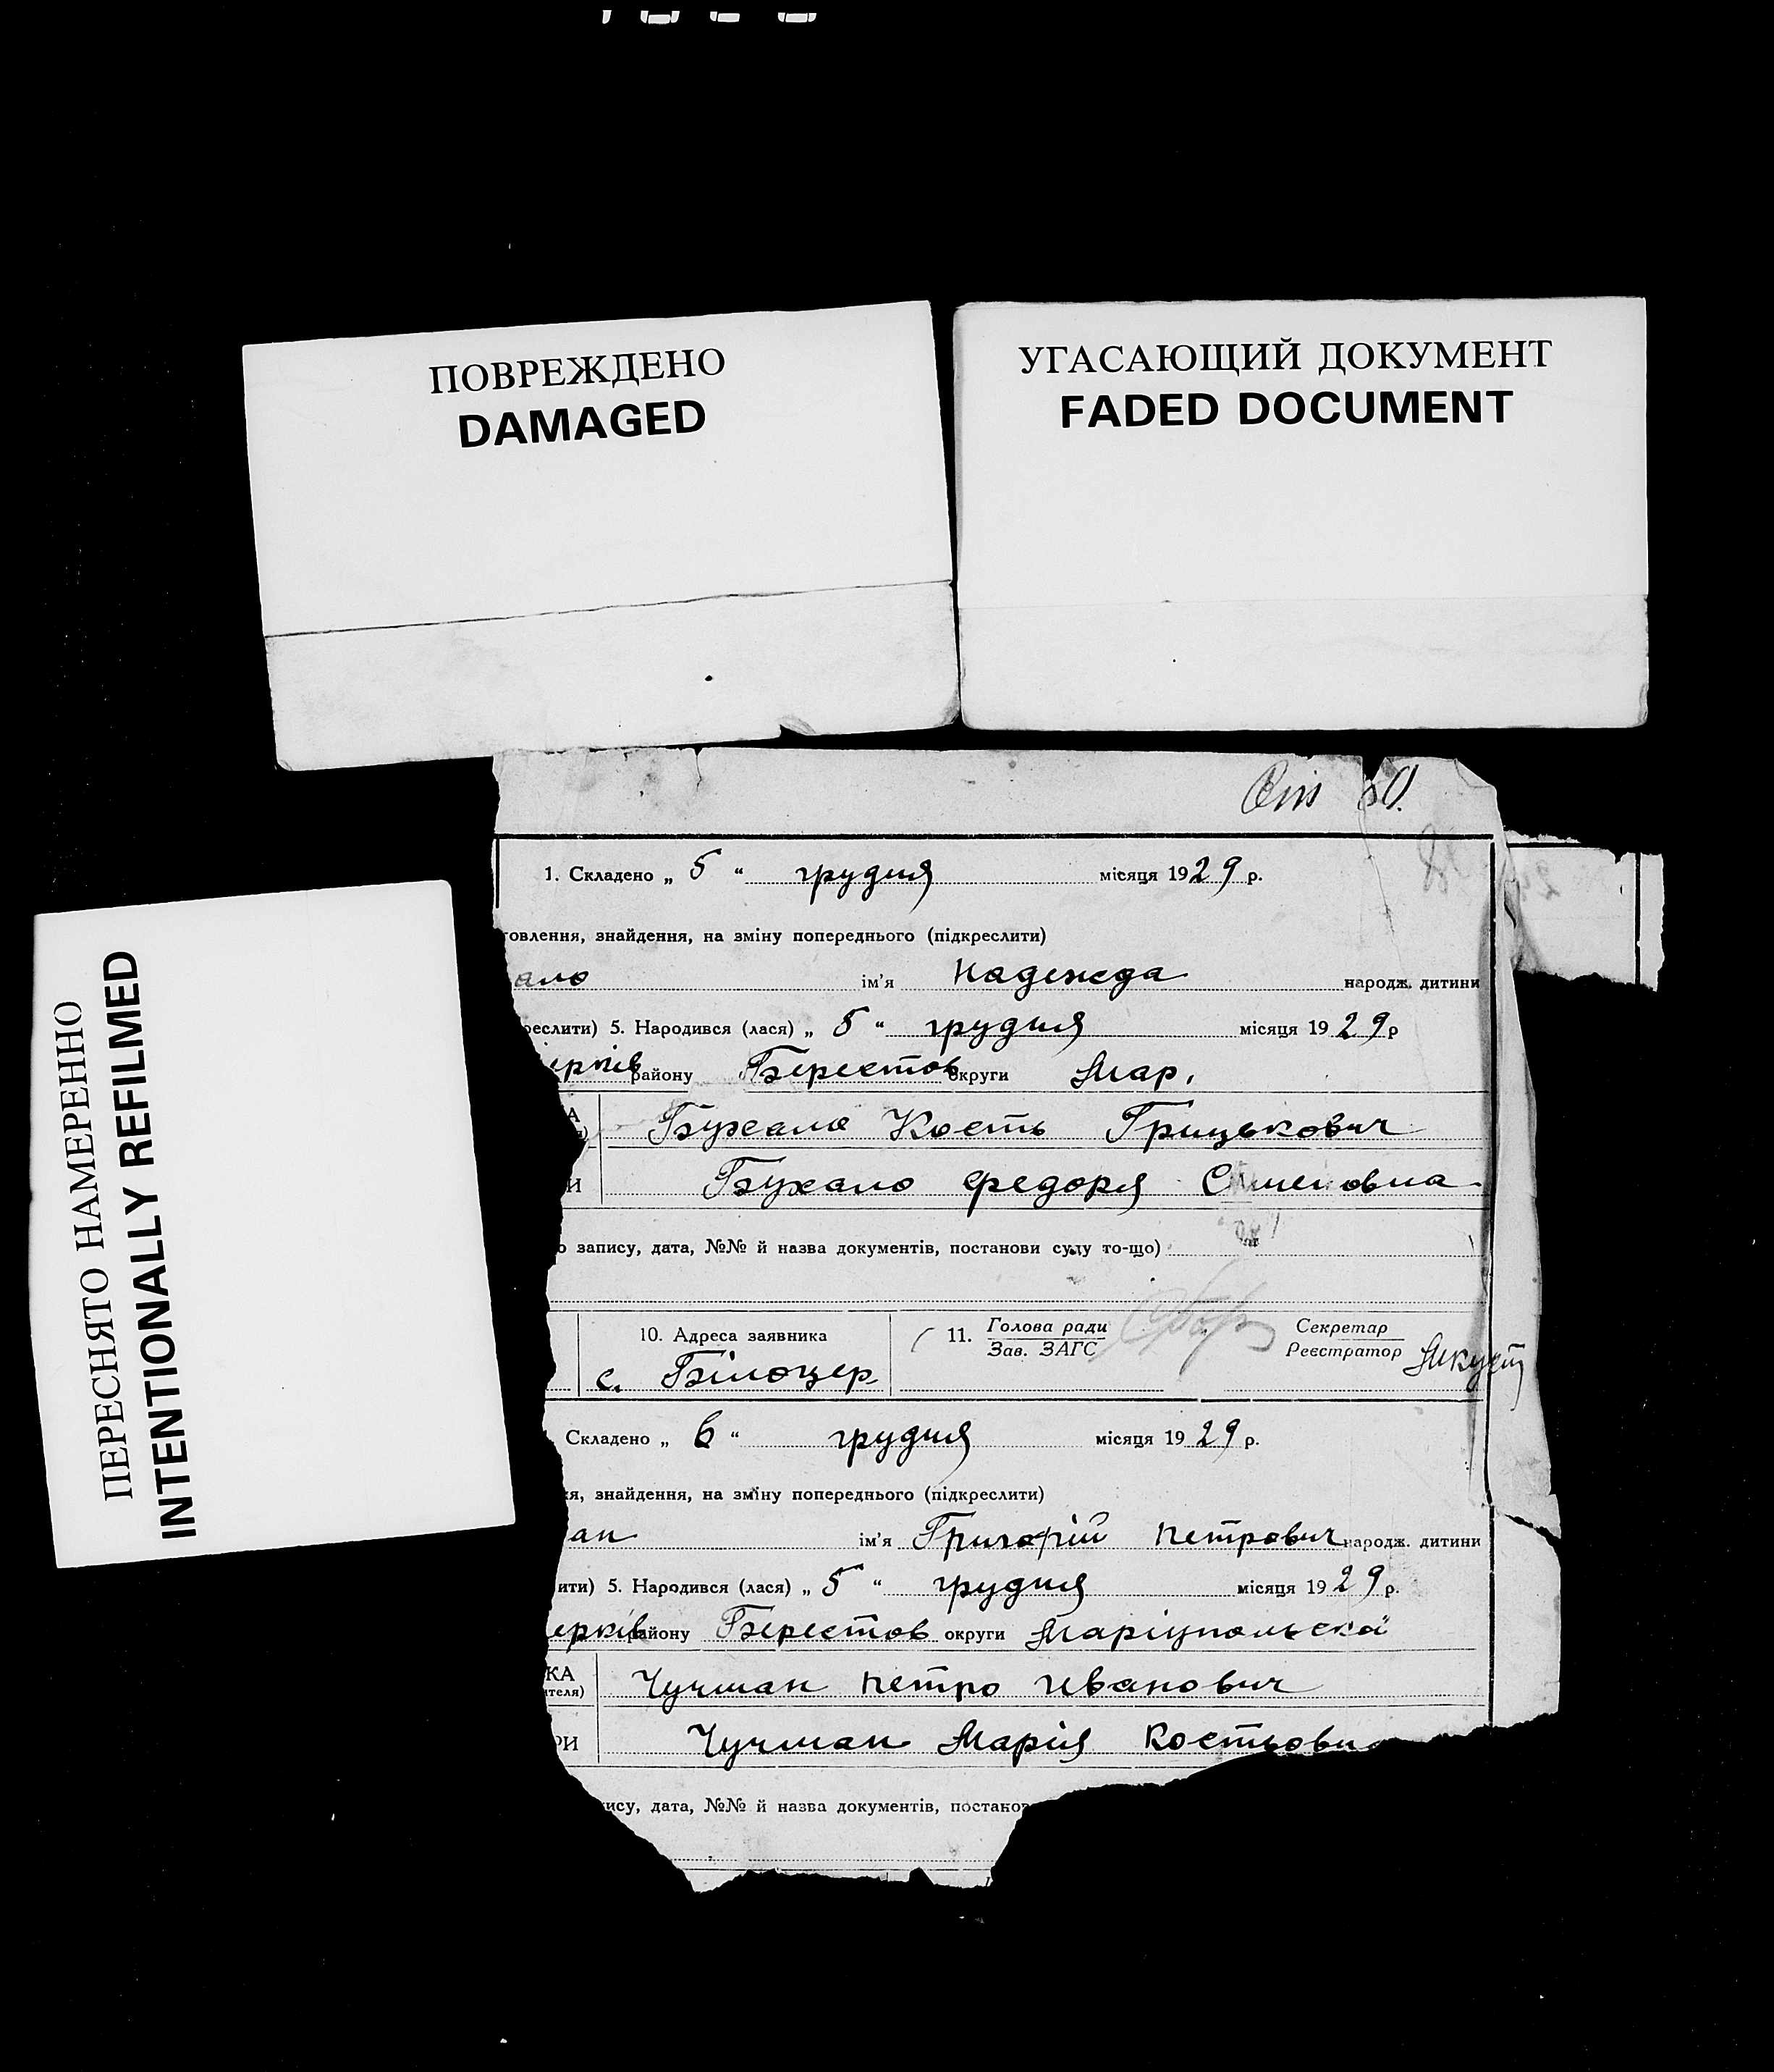 ПОВРЕЖДЕНО
DAMAGED
УГАСАЮЩИЙ ДОКУМЕНТ
FADED DOCUMENT
ПЕРЕСНЯТО НАМЕРЕННО
INTENTIONALLY REFILMED
1. Складено „ 5 “ грудня місяця 1929 р.
товлення, знайдення, на зміну попереднього (підкреслити)
ало ім'я Надежда народж. дитини
реслити) 5. Народився (лася) „ 5 “ грудня місяця 1929 р
ерків району Берестов округи Мар.
А Бухало Кость Грицькович
И Бухало Федоря Семеновна
о запису, дата, №№ й назва документів, постанови суду то-що)
10. Адреса заявника
с. Білоцер
11. Голова ради
Зав. ЗАГС
Секретар
Реєстратор
Складено „ 6 “ грудня місяця 1929 р.
ня, знайдення, на зміну попереднього (підкреслити)
ан ім'я Григорій Петрович народж. дитини
ити) 5. Народився (лася) „ 5 “ грудня місяця 1929 р.
ерків району Берестов округи Маріупольскоі
КА
ителя) Чучман Петро Иванович
РИ Чучман Марія Костьовн
ису, дата, №№ й назва документів, постанов